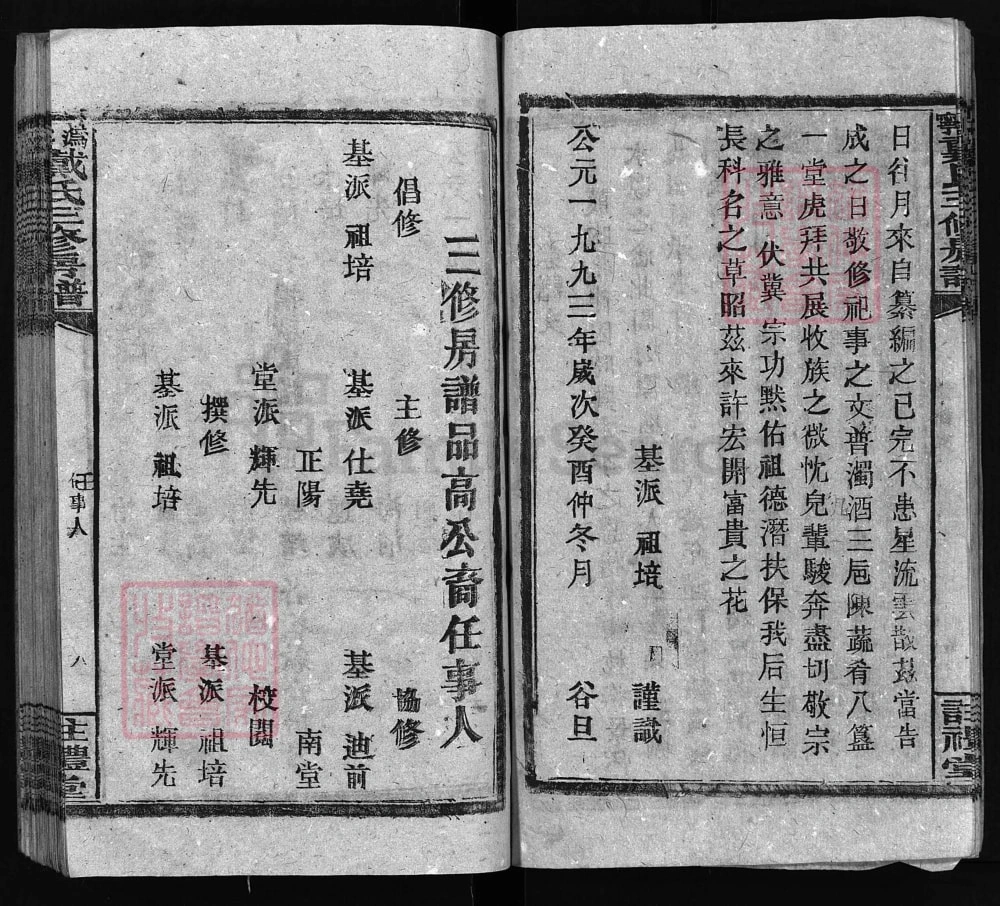 日往月來自纂編之已完不患星流雲散茲當告
成之日敬修祀事之文普濁酒三卮陳蔬肴八簋
一堂虎拜共展收族之微忱兒輩駿奔盡切敬宗
之雅意伏冀 宗功默佑祖德潛扶保我后生恒
長科名之草昭茲來許宏開富貴之花
基派 祖培 謹識
公元一九九三年歲次癸酉仲冬月 谷旦
三修房譜品高公裔任事人
倡修 主修 協修
基派 祖培 基派 仕堯 基派 迪前
正陽 南堂
堂派 輝先 校閱
撰修 基派 祖培
基派 祖培 堂派 輝先
溈 戴氏三修房譜
任事人
八
註禮堂